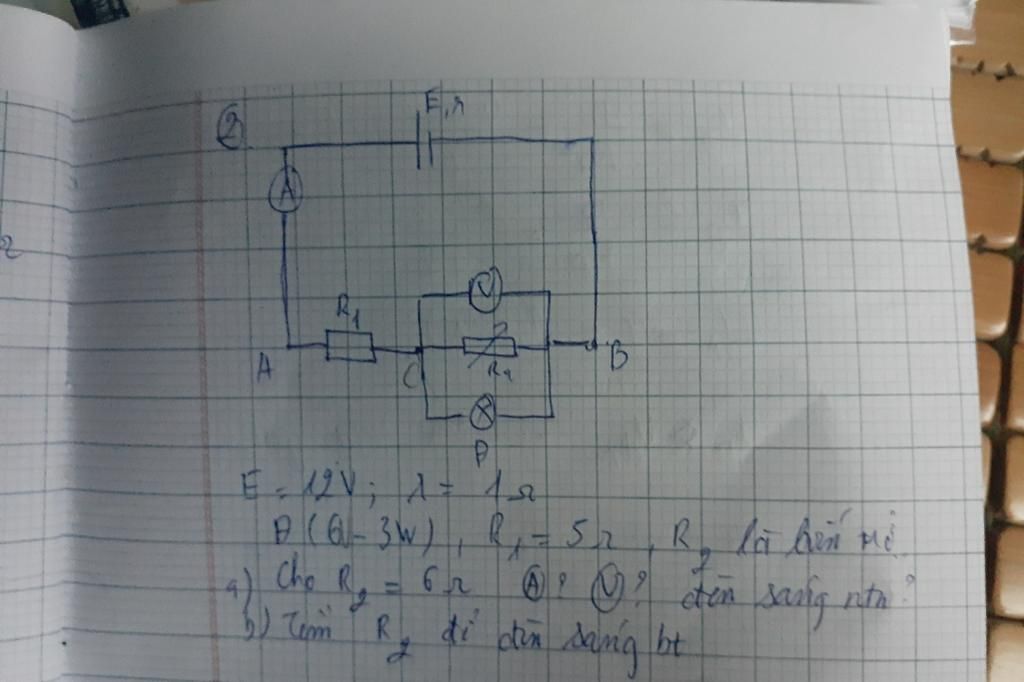 2
E,r
A
R1
V
R2
A
C
B
Đ
E = 12V; r = 1Ω
Đ (6V - 3W), R1 = 5Ω, R2 là biến trở
a) Cho R2 = 6Ω (A)? (V)? đèn sáng ntn?
b) Tìm R2 để đèn sáng bt